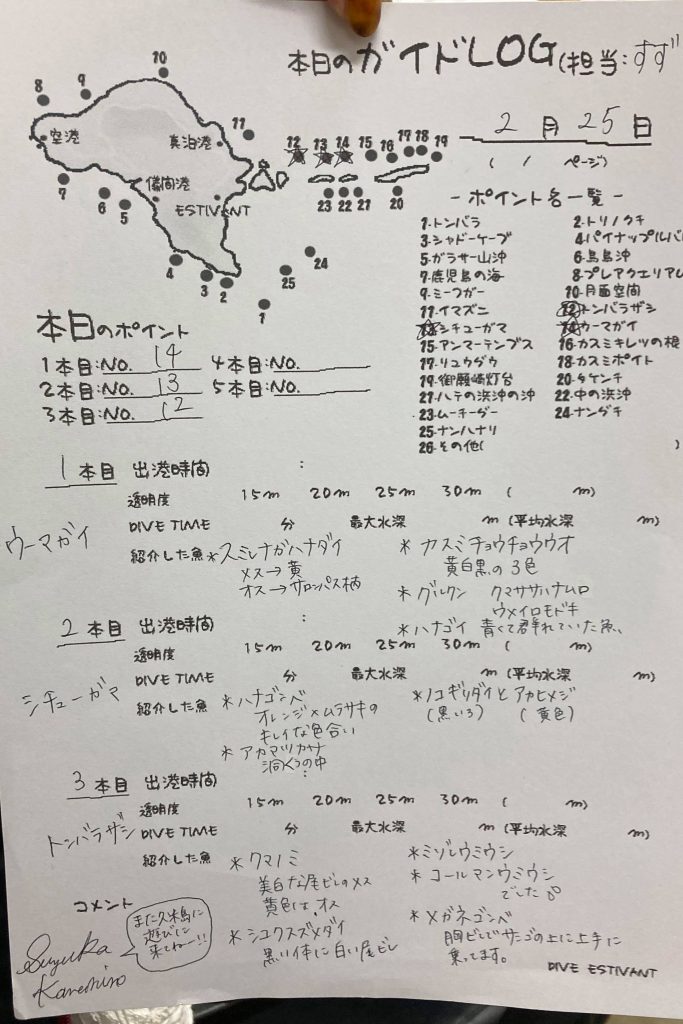 本日のガイドLOG(担当:すず
2月25日
( / ページ)
8
9
10
11
12
13
14
15
16
17
18
19
空港
真泊港
儀間港
ESTIVANT
7
6
5
4
3
2
1
25
24
23
22
21
20
- ポイント名一覧 -
1.トンバラ
2.トリノクチ
3.シャドーケーブ
4.パイナップル
5.ガラサー山沖
6.鳥島沖
7.鹿児島の海
8.プレアクエリアム
9.ミーフガー
10.月面空間
11.イマズニ
12.トンバラザシ
13.シチューガマ
14.ウーマガイ
15.アンマーテンプス
16.カスミキレツの根
17.リュウグウ
18.カスミポイント
19.御願崎灯台
20.タケンチ
21.ハテの浜沖の沖
22.中の浜沖
23.ムーチーグー
24.ナングチ
25.ナンハナリ
26.その他( )
本日のポイント
1本目:NO. 14
4本目:NO.
2本目:NO. 13
5本目:NO.
3本目:NO. 12
1本目 出港時間 :
透明度 15m 20m 25m 30m ( m)
DIVE TIME 分 最大水深 m (平均水深 m)
ウーマガイ
紹介した魚 *スミレナガハナダイ
メス→黄
オス→サロンパス柄
* カスミチョウチョウウオ
黄白黒の3色
* グルクン クマササハナムロ
ウメイロモドキ
* ハナゴイ 青くて群れていた魚、
2本目 出港時間 :
透明度 15m 20m 25m 30m ( m)
DIVE TIME 分 最大水深 m (平均水深 m)
シチューガマ
紹介した魚 *ハナゴンベ
オレンジ×ムラサキの
キレイな色合い
* アカマツカサ
洞くつの中
*ノコギリダイとアカヒメジ
(黒いろ) (黄色)
3本目 出港時間 :
透明度 15m 20m 25m 30m ( m)
DIVE TIME 分 最大水深 m (平均水深 m)
トンバラザシ
紹介した魚 *クマノミ
美白な尾ビレのメス
黄色は、オス
* シコクスズメダイ
黒い体に白い尾ビレ
*ミゾレウミウシ
* コールマンウミウシ
でした
*メガネゴンベ
胸ビレでサンゴの上に上手に
乗ってます。
コメント
また久米島に
遊びに
来てねー!!
Suzuka
Kaneshiro
DIVE ESTIVANT